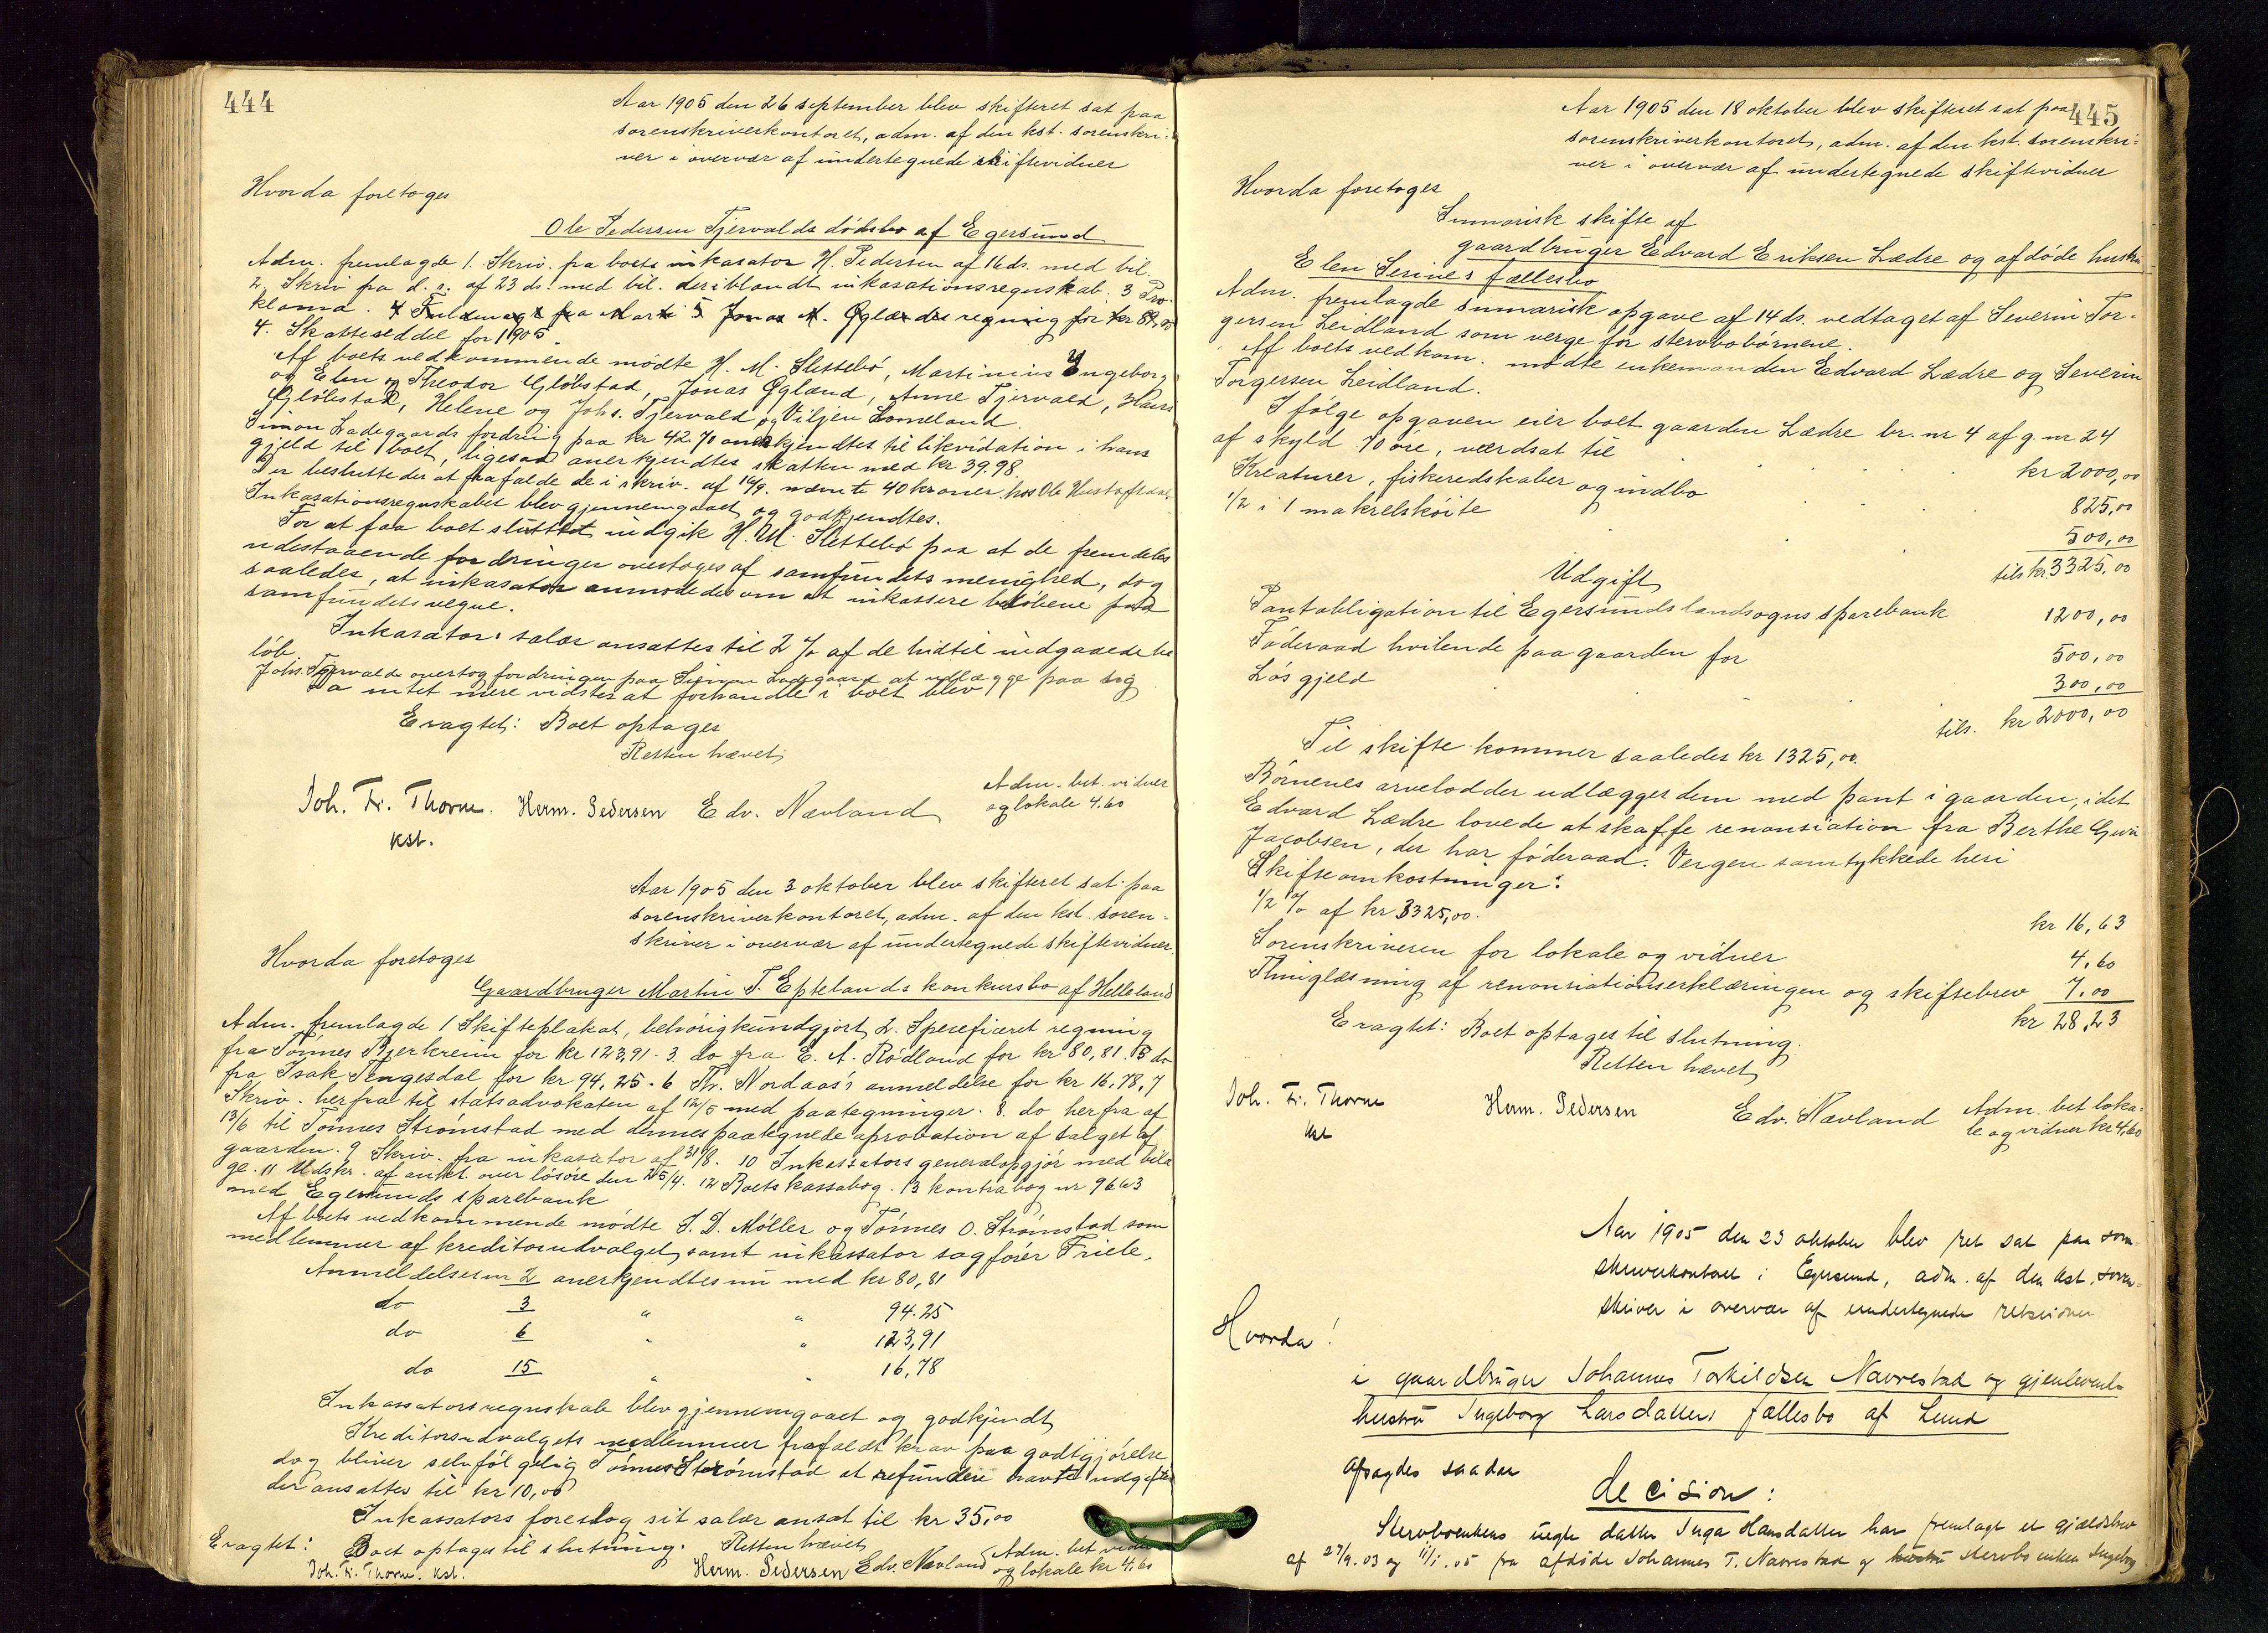 444
Aar 1905 den 26 september blev skifteret sat paa
sorenskriverkontoret, adm. af den kst. sorenskri-
ver i overvær af undertegnede skiftevidner
Hvorda foretoges
Ole Pedersen Tjervalds dödsbo af Egersund
Adm. fremlagde 1. Skriv. fra boets inkasator H. Pedersen af 16 ds. med bil.
2. Skriv fra d. s. af 23 ds. med bil. deriblandt inkasationsregnskab. 3 Pro-
klama. 4 Fuldmagt fra Marti 5 Jonas M. Ögländs regning for kr
4. Skatteseddel for 1905.
Af boets vedkommende mödte H. M. Slettebö, Martinius Ingeborg
og Elen og Theodor Glöbstad, Jonas Ögland, Anne Tjervald, Hans
Glöbstad, Helene og Johs. Tjervald og Viljen Lomeland.
Simon Ladegaards fordring paa kr 42.70 anerkjendtes til likvidation i hans
gjeld til boet, ligesaa anerkjendtes skatten med kr 39.98.
Der besluttedes at frafalde de i skriv. af 16/9. nævnte 40 kroner hos Ole
Inkasationsregnskabet blev gjennemgaaet og godkjendtes.
For at faa boet sluttet indgik H. M. Slettebö paa at de fremdeles
udestaaende fordringer overtoges af samfundets menighed, dog
saaledes, at inkasator anmodedes om at inkassere belöbene paa
samfundets vegne.
Inkasators salær ansattes til 2 % af de hidtil indgaaede be
löb.
Johs. Tjervald overtog fordringen paa Simon Ladegaard at udlægge paa sig
Da intet mere vidstes at forhandle i boet blev
Eragtet: Boet optages
Retten hævet
Joh. Fr. Thorne. Herm. Pedersen Edv. Nævland
kst.
Adm. bet. vidner
og lokale 4.60
Aar 1905 den 3 oktober blev skifteret sat paa
sorenskriverkontoret, adm. af den kst. soren-
skriver i overvær af undertegnede skiftevidner
Hvorda foretoges
Gaardbruger Martin T. Eptelands konkursbo af Helleland
Adm. fremlagde 1 Skifteplakat, behörig kundgjort, 2. Specificeret regning
fra Tönnes Bjerkreim for kr 123,91. 3. do fra E. A. Rödland for kr 80,81. 5 do
fra Isak Tengesdal for kr 94,25. 6 Th. Nordaas's anmeldelse for kr 16,78, 7
Skriv. herfra til statsadvokaten af 12/5 med paategninger. 8. do herfra af
13/6 til Tönnes Strömstad med dennes paategnede aprobation af salget af
gaarden. 9 Skriv. fra inkasator af 31/8. 10 Inkassators generalopgjör med bila
ge. 11 Udskr. af aukt. over lösöre den 25/4. 12 Boets kassabog. 13 kontrabog nr 9663
med Egersunds sparebank
Af boets vedkommende mödte J. D. Möller og Tönnes O. Strömstad som
medlemmer af kreditorudvalget, samt inkassator sagförer Friele.
Anmeldelses nr 2 anerkjendtes nu med kr 80,81
do 3 " " 94.25
do 6 " " 123,91
do 15 " " 16,78
Inkassatorsregnskab blev gjennemgaaet og godkjendt
Kreditorudvalgets medlemmer frafaldt krav paa godtgjörelse
dog bliver selvfölgelig Tönnes Strömstad at refundere havte udgifter
der ansattes til kr 10,00
Inkassators foreslog sit salær ansat til kr 35,00
Eragtet: Boet optages til slutning. Retten hævet
Joh. Fr. Thorne. kst. Herm. Pedersen Edv. Nævland
Adm. bet vidner
og lokale kr 4.60
445
Aar 1905 den 18 oktober blev skifteret sat paa
sorenskriverkontoret, adm. af den kst. sorenskri-
ver i overvær af undertegnede skiftevidner
Hvorda foretoges
Summarisk skifte af
gaardbruger Edvard Eriksen Lædre og afdöde hustru
Elen Serines fællesbo
Adm. fremlagde summarisk opgave af 14 ds. vedtaget af Severin Tor-
gersen Leidland som verge for stervbobörnene.
Af boets vedkom. mödte enkemanden Edvard Lædre og Severin
Torgersen Leidland.
Ifölge opgaven eier boet gaarden Lædre br. nr 4 af g. nr 24
af skyld 70 öre, værdsat til kr 2000,00
Kreaturer, fiskeredskaber og indbo 825,00
1/2 i 1 makrelsköite 500,00
tils kr 3325,00
Udgift
Pantobligation til Egersunds landsogns sparebank 1200,00
Föderaad hvilende paa gaarden for 500,00
Lös gjeld 300,00
tils. kr 2000,00
Til skifte kommer saaledes kr 1325,00.
Börnenes arvelodder udlægges dem med pant i gaarden, idet
Edvard Lædre lovede at skaffe renonsiation fra Berthe Guri
Jacobsen, der har föderaad. Vergen samtykkede heri
Skifteomkostninger:
1/2 % af kr 3325,00. kr 16,63
Sorenskriveren for lokale og vidner 4.60
Thinglæsning af renonsiationserklæringen og skiftebrev 7.00
kr 28,23
Eragtet: Boet optages til slutning.
Retten hævet
Joh. Fr. Thorne Herm. Pedersen Edv. Nævland
kst
Adm. bet loka-
le og vidner kr 4,60
Aar 1905 den 23 oktober blev ret sat paa soren-
skriverkontoret i Egersund, adm. af den kst. soren-
skriver i overvær af undertegnede retsvidner
Hvorda!
i gaardbruger Johannes Torkildsen Navrestad og gjenlevende
hustru Ingeborg Larsdatters fællesbo af Lund
afsagdes saadan
decision:
Stervboenkens uegte datter Inga Hansdatter har fremlagt et gjældsbrev
af 27/9.03 og 11/1.05 fra afdöde Johannes T. Navrestad og hustru stervboenken Ingeborg